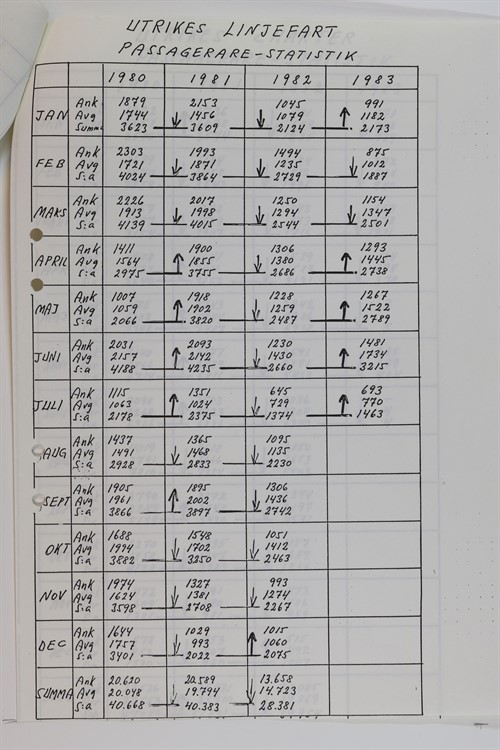 UTRIKES LINJEFART
PASSAGERARE-STATISTIK
1980 1981 1982 1983
Ank 1879 2153 1045 991
JAN Avg 1744 ↓ 1456 ↓ 1079 ↑ 1182
Summa 3623 3609 2124 2173
Ank 2303 1993 1494 875
FEB Avg 1721 ↓ 1871 ↓ 1235 ↓ 1012
S:a 4024 3864 2729 1887
Ank 2226 2017 1250 1154
MARS Avg 1913 ↓ 1998 ↓ 1294 ↓ 1347
S:a 4139 4015 2544 2501
Ank 1411 1900 1306 1293
APRIL Avg 1564 ↑ 1855 ↓ 1380 ↑ 1445
S:a 2975 3755 2686 2738
Ank 1007 1918 1228 1267
MAJ Avg 1059 ↑ 1902 ↓ 1259 ↑ 1522
S:a 2066 3820 2487 2789
Ank 2031 2093 1230 1481
JUNI Avg 2157 ↑ 2142 ↓ 1430 ↑ 1734
S:a 4188 4235 2660 3215
Ank 1115 1351 645 693
JULI Avg 1063 ↑ 1024 ↓ 729 ↑ 770
S:a 2178 2375 1374 1463
Ank 1437 1365 1095
AUG Avg 1491 ↓ 1468 ↓ 1135
S:a 2928 2833 2230
Ank 1905 1895 1306
SEPT Avg 1961 ↑ 2002 ↓ 1436
S:a 3866 3897 2742
Ank 1688 1548 1051
OKT Avg 1994 ↓ 1702 ↓ 1412
S:a 3882 3250 2463
Ank 1974 1327 993
NOV Avg 1624 ↓ 1381 ↓ 1274
S:a 3598 2708 2267
Ank 1644 1029 1015
DEC Avg 1757 ↓ 993 ↑ 1060
S:a 3401 2022 2075
Ank 20.620 20.589 13.658
SUMMA Avg 20.048 ↓ 19.794 ↓ 14.723
S:a 40.668 40.383 28.381